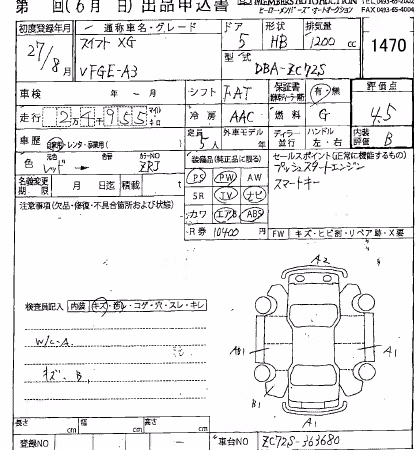 第 回(6月 日)出品申込書
HERO MEMBERS AUTO AUCTION
FAX 0493-65-4004
初度登録年月
27/8月
通称車名・グレード
スイフト XG
VFGE-A3
ドア 5
形状 HB
排気量 1200 cc
型式
DBA-ZC72S
1470
車検 年 ー 月
シフト FAT
保証書 有・無
評価点
4.5
走行 24955 マイル キロ
冷房 AAC
燃料 G
車歴 自家用・レンタ・
定員 5人
外車モデル
ディーラー 並行
ハンドル 左・右
内装評価 B
色 レッド →
元色
カラーNO ZRJ
名義変更期限 月 日迄
積載 t
装備品(純正品に限る)
PS PW AW
SR TV ナビ
カワ エアB ABS
R券 10400 円
セールスポイント(正常に機能するもの)
プッシュスタートエンジン
スマートキー
注意事項(欠品・修復・不具合箇所および状態)
FW キズ・ヒビ割・リペア跡・X要
検査員記入 内装 キズ・汚レ・コゲ・穴・スレ・キレ
W/C-A
キズ B
A2
AB1
A1
B1
A1
長さ cm
幅 cm
高さ cm
登録NO ー
車台NO ZC72S-363680